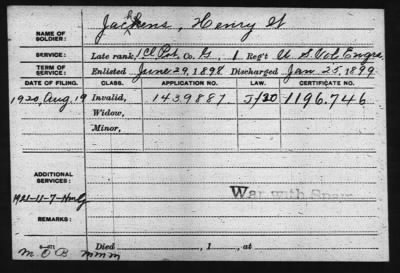 NAME OF SOLDIER: Jackens, Henry W
SERVICE: Late rank, 1 Cl. Pvt. Co. G, 1 Reg't U. S. Vol. Engrs.
TERM OF SERVICE: Enlisted June 29, 1898 Discharged Jan. 25, 1899
DATE OF FILING. CLASS. APPLICATION NO. LAW. CERTIFICATE NO.
1920 Aug. 19 Invalid, 1439887 J+20 1196.746
Widow,
Minor,
ADDITIONAL SERVICES: War with
1921-11-7-
REMARKS:
6-671
M.O.B mmm Died , 1 , at